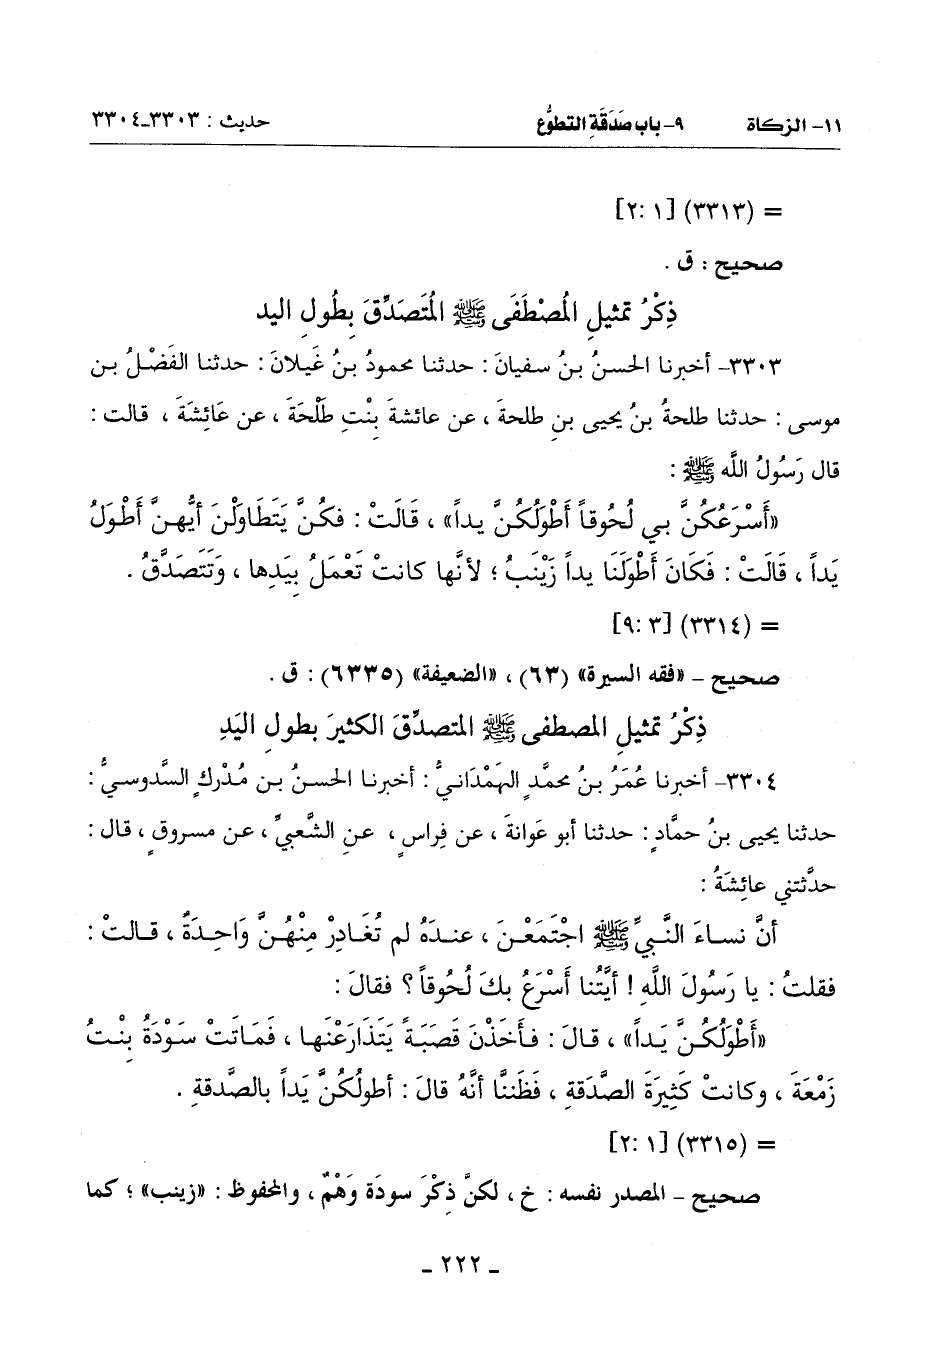 ١١- الزكاة ٩- باب صَدَقَةِ التطوُّع حديث : ٣٣٠٣-٣٣٠٤
= (٣٣١٣) [١ :٢]
صحيح : ق .
ذِكْرُ تمثيلِ المُصْطَفَى ﷺ المُتَصَدِّقَ بِطُولِ اليد
٣٣٠٣- أخبرنا الحسنُ بنُ سفيانَ : حدثنا محمودُ بنُ غَيلانَ : حدثنا الفَضْلُ بن
موسى : حدثنا طلحةُ بنُ يحيى بنِ طلحةَ ، عن عائشةَ بنْتِ طَلْحَةَ ، عن عَائِشَةَ ، قالت :
قال رَسُولُ اللَّه ﷺ :
«أَسْرَعُكُنَّ بي لُحُوقاً أَطْوَلُكُنَّ يداً» ، قَالَتْ : فكُنَّ يَتَطَاوَلْنَ أيُّهنَّ أطْوَلُ
يَداً ، قَالَتْ : فَكَانَ أَطْوَلَنَا يداً زَيْنَبُ ؛ لأنَّها كانتْ تَعْمَلُ بِيَدِها ، وَتَتَصَدَّقُ .
= (٣٣١٤) [٣ :٩]
صحيح - «فقه السيرة» (٦٣) ، «الضعيفة» (٦٣٣٥) : ق .
ذِكْرُ تمثيلِ المصطفى ﷺ المتصدِّقَ الكثيرَ بطولِ اليَدِ
٣٣٠٤- أخبرنا عُمَرُ بنُ محمَّدٍ الهَمْدَانيُّ : أخبرنا الحسنُ بن مُدْركٍ السَّدوسيُّ :
حدثنا يحيى بنُ حمَّادٍ : حدثنا أبو عَوانةَ ، عن فِراسٍ ، عنِ الشَّعبيِّ ، عن مسروقٍ ، قال :
حدَّثتني عائِشَةُ :
أنَّ نساءَ النَّبيِّ ﷺ اجْتَمَعْنَ ، عندَهُ لم تُغَادِرْ مِنْهُنَّ وَاحِدَةٌ ، قالتْ :
فقلتُ : يا رَسُولَ اللَّهِ ! أيَّتُنا أسْرَعُ بكَ لُحُوقاً ؟ فقالَ :
«أَطْوَلُكُنَّ يَداً» ، قالَ : فأَخَذْنَ قَصَبَةً يَتَذَارَعْنَها ، فَمَاتَتْ سَوْدَةُ بِنْتُ
زَمْعَةَ ، وكانتْ كَثِيرَةَ الصَّدَقةِ ، فَظَننَّا أنَّهُ قالَ : أطولُكُنَّ يَداً بالصَّدقةِ .
= (٣٣١٥) [١ :٢]
صحيح - المصدر نفسه : خ ، لكنَّ ذِكْرَ سودَة وَهْمٌ ، والمحفوظ : «زينب» ؛ كما
- ٢٢٢ -